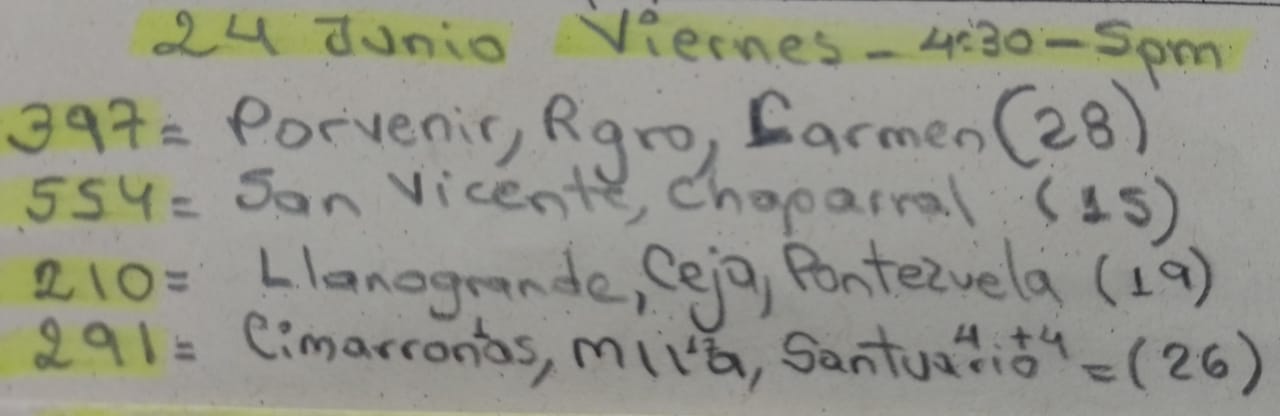 24 Junio Viernes - 4:30 - 5pm
397 = Porvenir, Rgro, Carmen (28)
554 = San Vicente, Chaparral (15)
210 = Llanogrande, Ceja, Pontezuela (19)
291 = Cimarronas, Santuario 4 + 4 = (26)